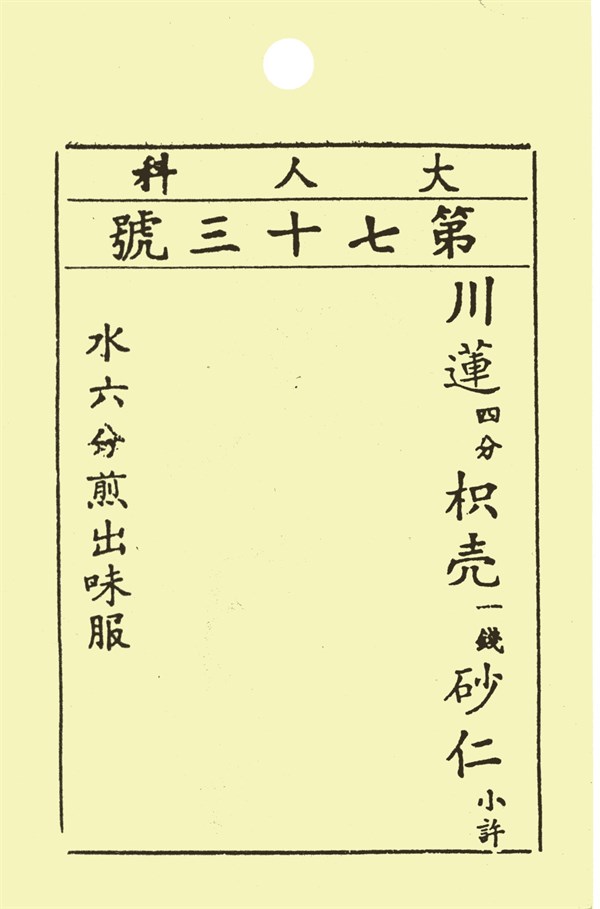 大人科
第七十三號
川蓮四分枳壳一錢砂仁小許
水六分煎出味服